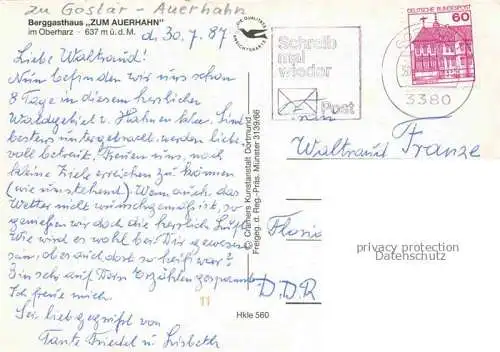 zu Goslar - Auerhahn
Berggasthaus „ZUM AUERHAHN"
im Oberharz · 637 m ü. d. M.
d. 30. 7. 87
Liebe Waltraud!
Nun befinden wir uns schon
8 Tage in diesem herrlichen
Waldgebiet v. Hahnenklee. Sind
bestens untergebracht, werden liebe-
voll betreut. Freuen uns, noch
kleine Ziele erreichen zu können
(wie umstehend). Wenn auch das
Wetter nicht wunschgemäß ist, so
genießen wir doch die herrliche Luft.
Wie wird es wohl bei Dir gewesen
sein, ob es auch dort so heiß war?
Bin sehr auf Dein Erzählen gespannt.
Ich freue mich.
Sei lieb gegrüßt von
Tante Friedel u. Lisbeth
DIE QUALITÄTS
ANSICHTSKARTE
© Cramers Kunstanstalt Dortmund
Freigeg. d. Reg.-Präs. Münster 3139/66
11
Hkle 560
Schreib
mal
wieder
Post
DEUTSCHE BUNDESPOST
60
3380
Waltraud Franze
privacy protection
Datenschutz
DDR